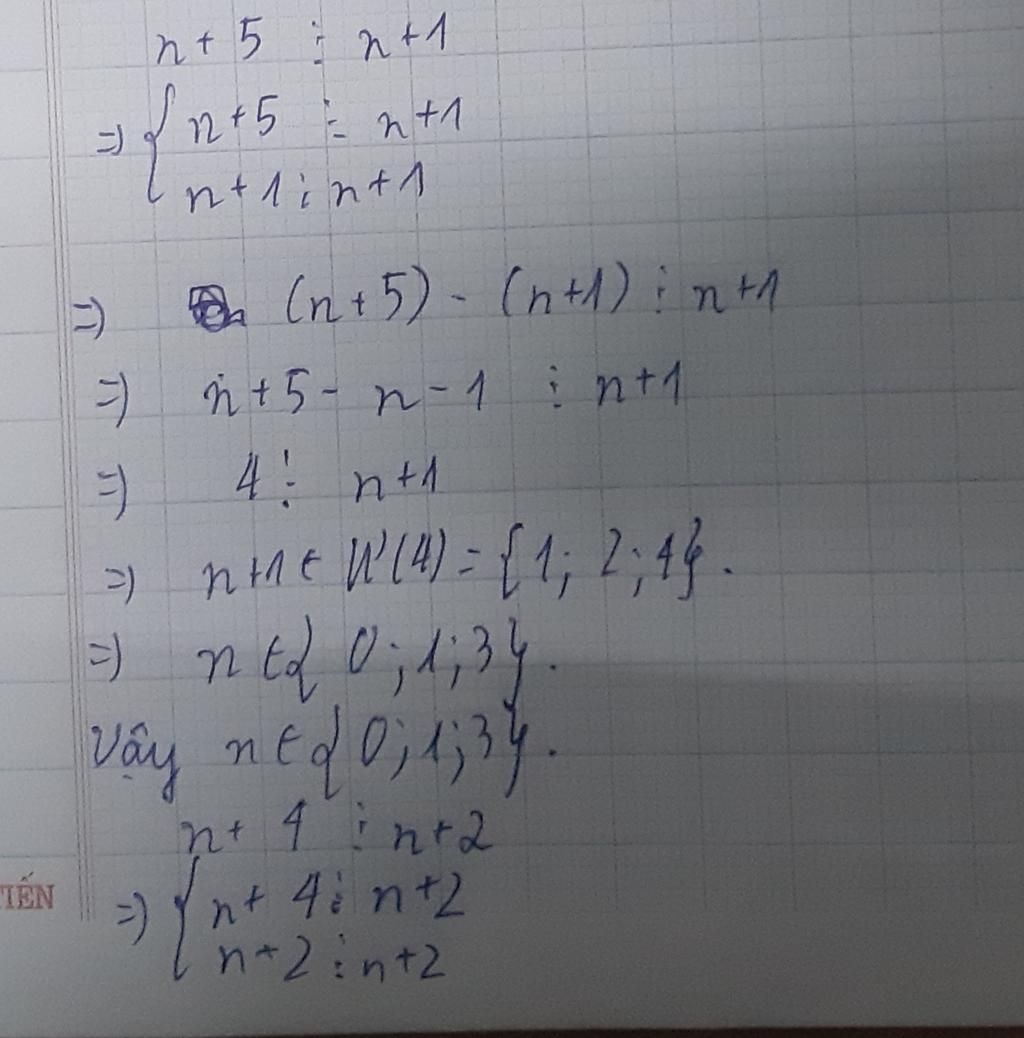 n + 5 ⋮ n+1
=> { n+5 ⋮ n+1
n+1 ⋮ n+1
=> (n+5) - (n+1) ⋮ n+1
=> n+5 - n - 1 ⋮ n+1
=> 4 ⋮ n+1
=> n+1 ∈ Ư(4) = {1; 2; 4}.
=> n ∈ { 0; 1; 3}.
Vậy n ∈ {0; 1; 3}.
n + 4 ⋮ n+2
=> { n+ 4 ⋮ n+2
n+2 ⋮ n+2
TIẾN